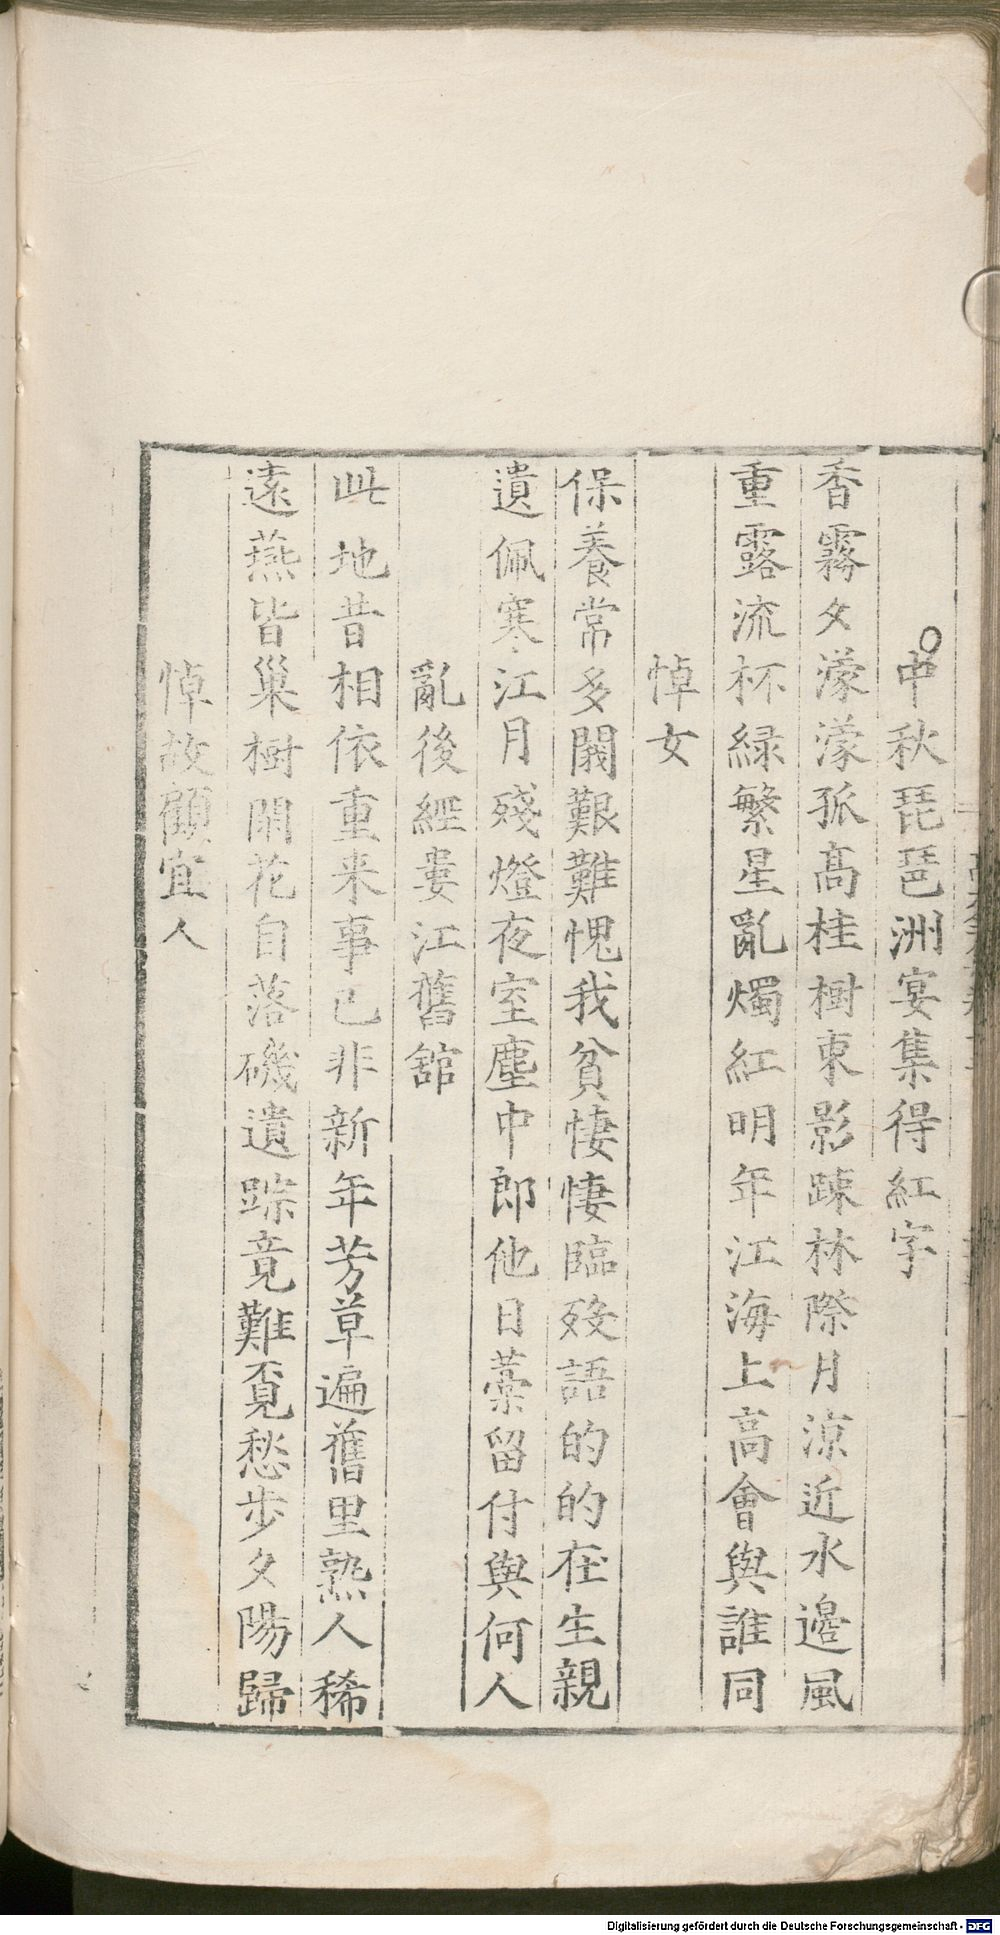 中秋琵琶洲宴集得紅字
香霧夕濛濛孤高桂樹東影踈林際月涼近水邊風
重露流杯緑繁星亂燭紅明年江海上高會與誰同
悼女
保養常多闕艱難愧我貧悽悽臨歿語的的在生親
遺佩寒江月殘燈夜室塵中郎他日藁留付與何人
亂後經婁江舊舘
此地昔相依重来事已非新年芳草遍舊里熟人稀
遠燕皆巢樹閒花自落磯遺踪竟難覔愁步夕陽歸
悼故顧宜人
Digitalisierung gefördert durch die Deutsche Forschungsgemeinschaft - DFG